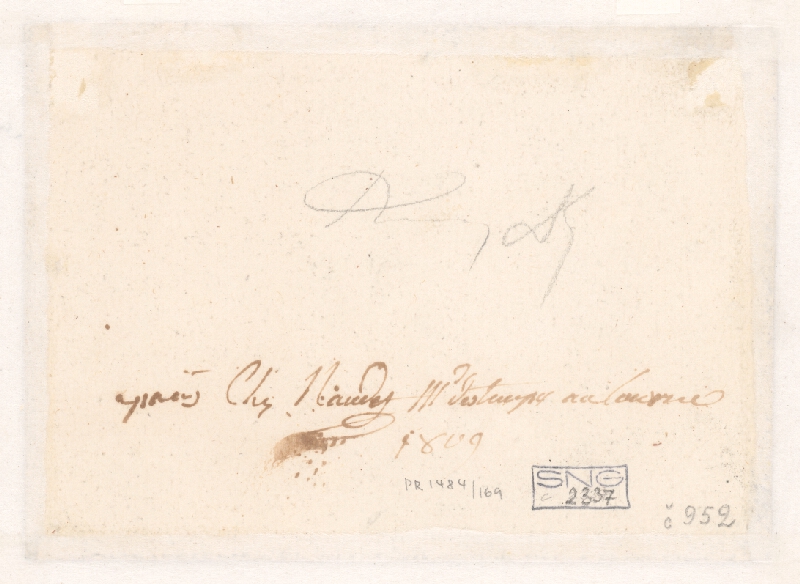 Chz Naudet Md d'estampes au Louvre
1809
PR 1484/169
SNG
c 2337
č 952